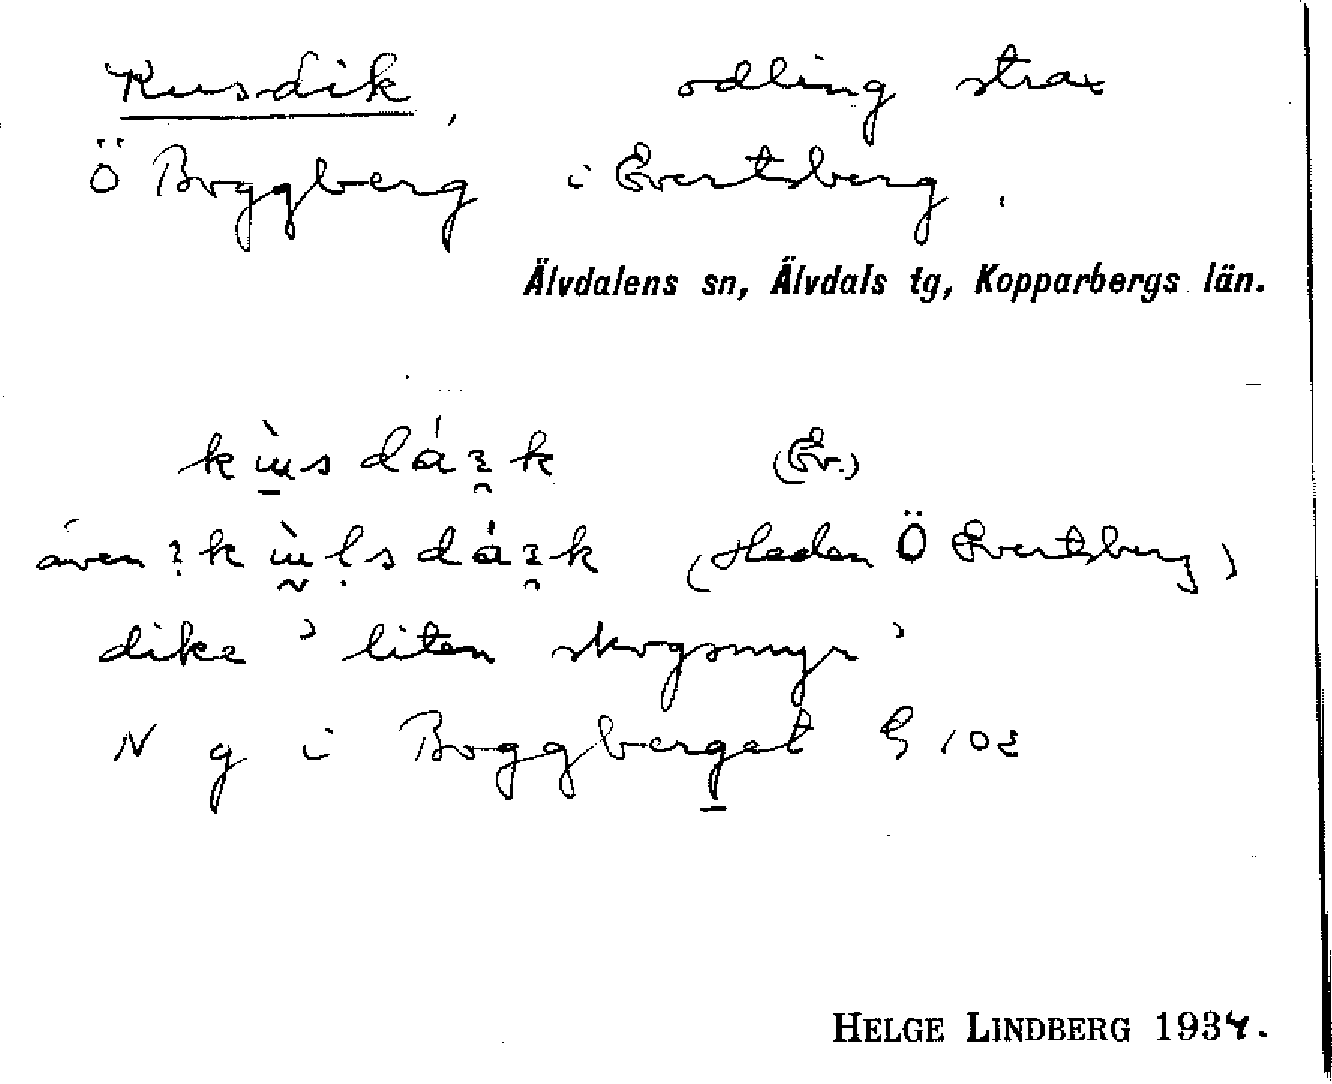 Kusdik, odling strax
Ö Boggberg i Evertsberg.
Älvdalens sn, Älvdals tg, Kopparbergs län.
(Ev.)
även (Heden Ö Evertsberg)
dike 'liten skogsmyr'
N g i Boggberget G 102
HELGE LINDBERG 1934.